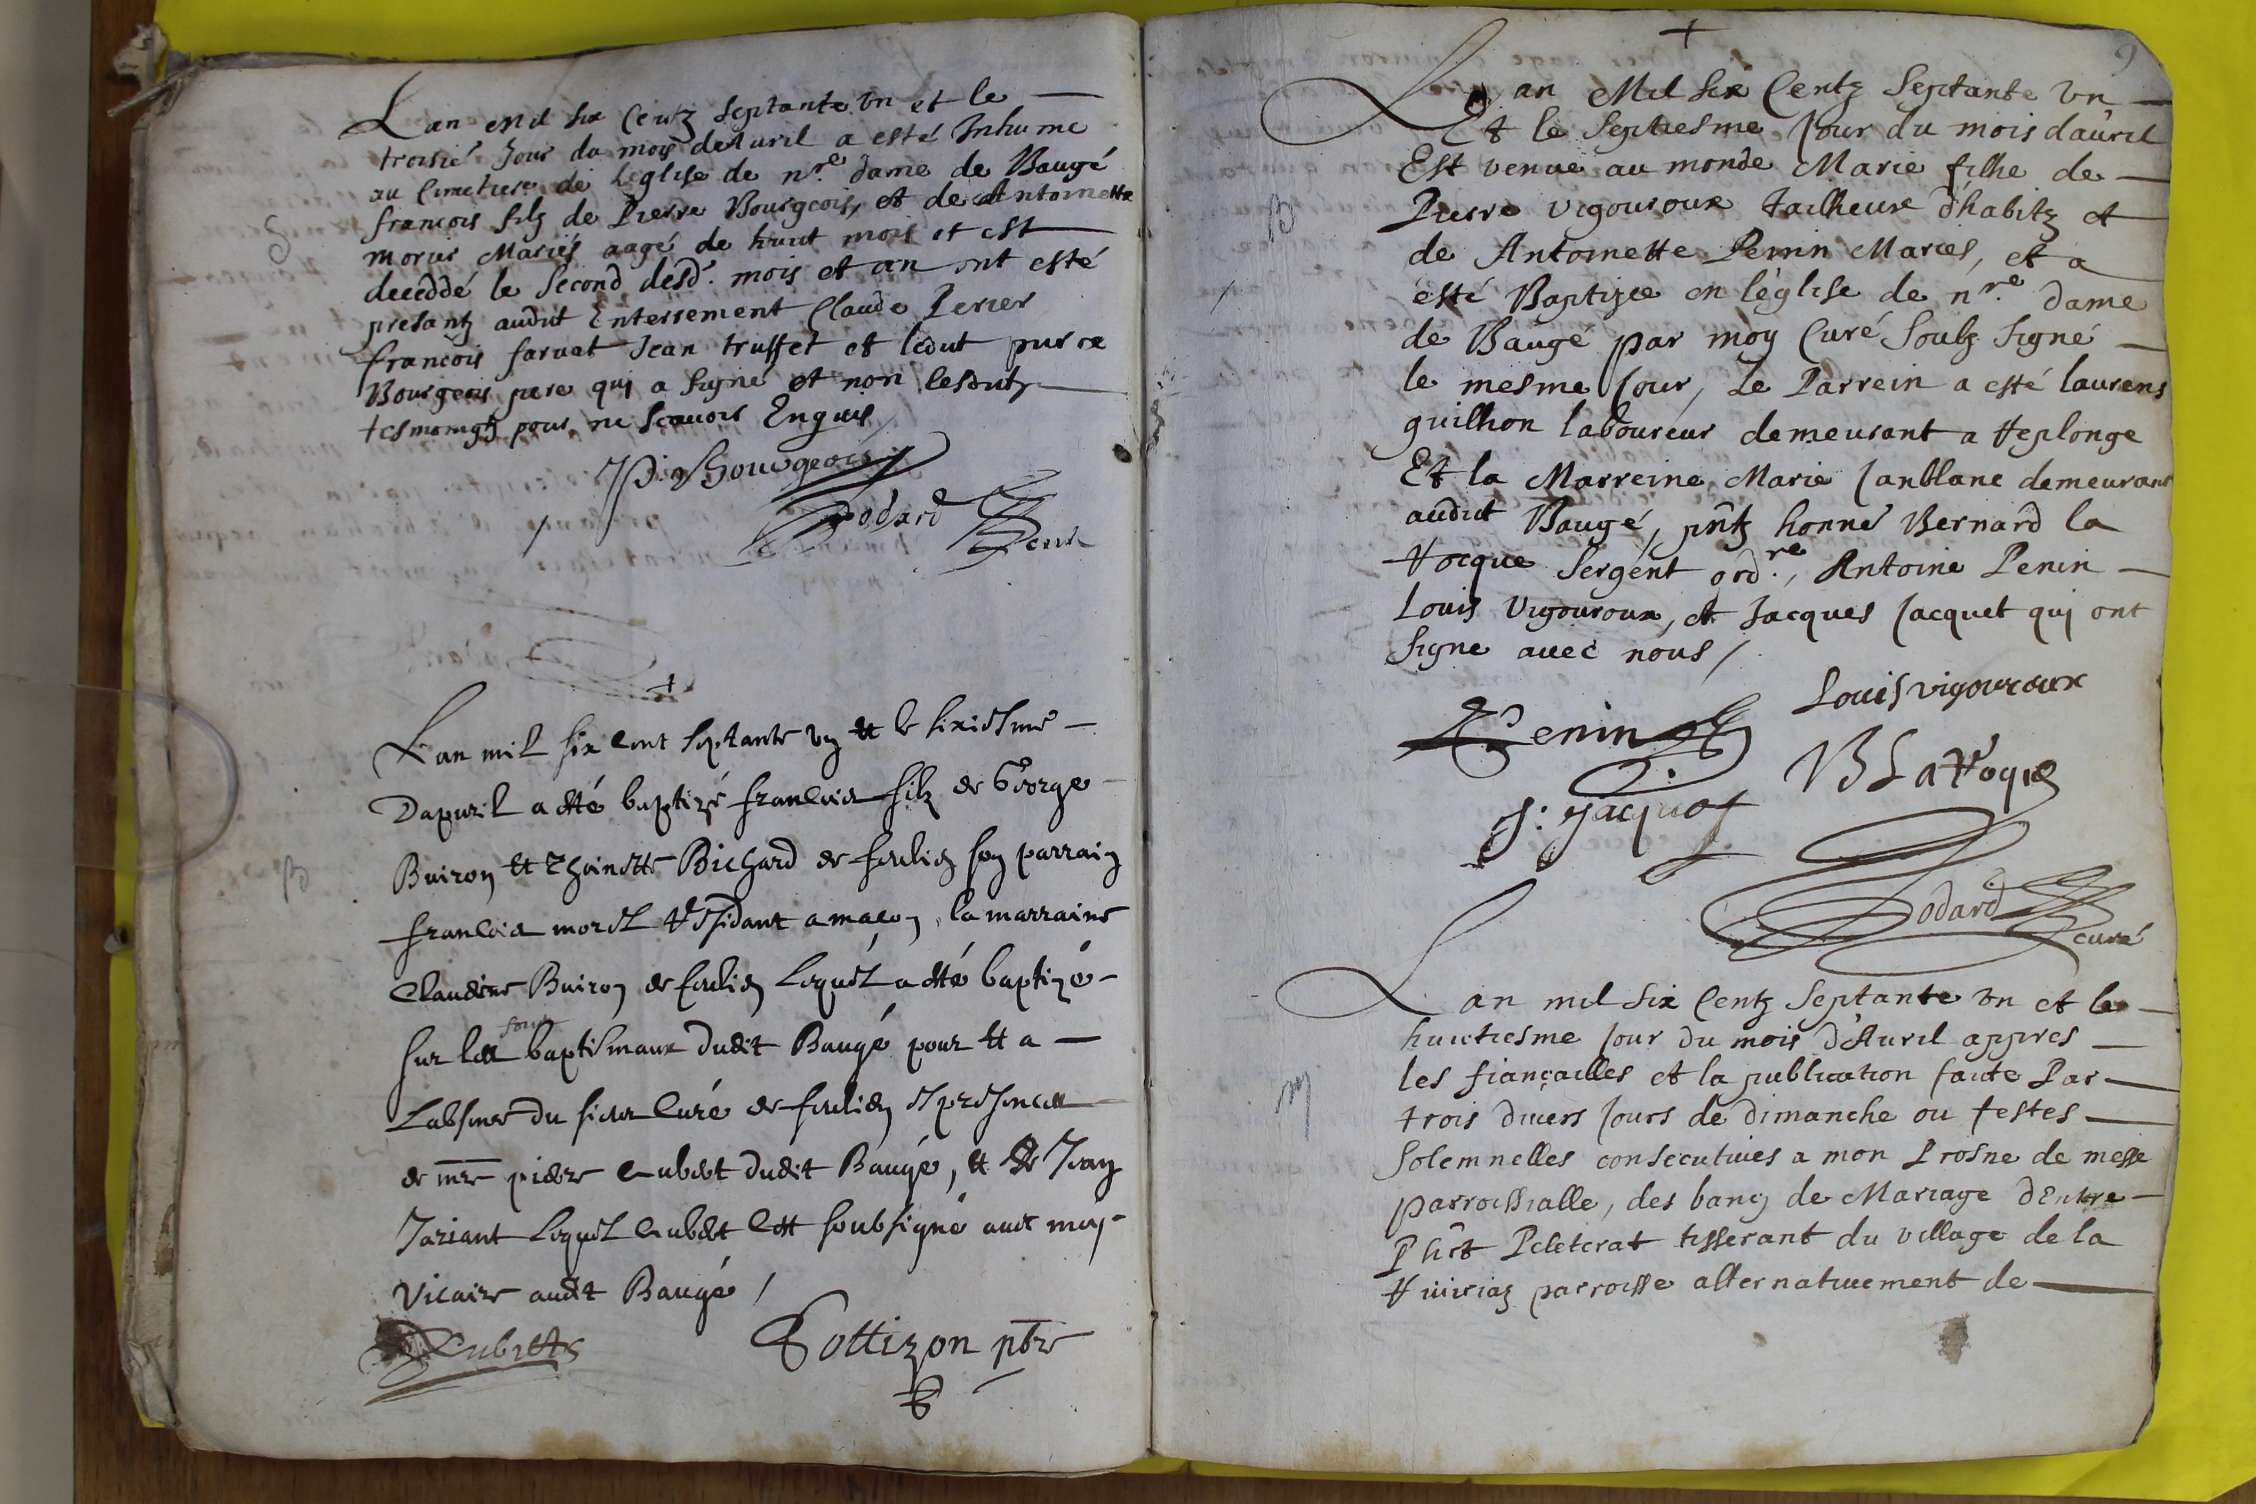 Lan Mil six Centz Septante vn et le
troisié Jour du mois de Auril a esté Inhumé
au Cimetiere de leglise de nre dame de Baugé
francois filz de Pierre Bourgeois, et de Antoinette
morier Mariés aagé de huict mois et est
deceddé le Second desd. mois et an ont esté
presantz audit Enterrement Claude Perier
francois faruet Jean truffet et ledit pierre
Bourgeois pere qui a signé et non lesditz
tesmoingtz pour ne scauoir Enquis
P Bourgeois
Godard
Curé
S
+
Lan mil six cent septante vn et le sixiesme
Dapuril a esté baptizé francois filz de George
Buiron et Thoinette Bichard de son parrain
B
francois morel residant a macon, la marraine
Claudine Buiron de lequel a esté baptizé
sur les fons baptismaux dudit Baugé pour et a
Labsence du sieur Curé de presences
de mre pierre Cubet dudit Baugé, et de Jean
Jariant lequel Cubet cest soubsigné auec moy
Vicaire audit Baugé /
Cubet
Gottizon pbre
9
+
Lan Mil six Centz Septante vn
Et le Septiesme Jour du mois dauril
Est venue au monde Marie filhe de
Pierre vigouroux tailheur d'habitz et
B
de Antoinette Penin Mariés, et a
esté Baptizee en léglise de nre dame
de Baugé par moy Curé Soubz signé
le mesme Jour, Le Parrein a esté laurens
guilhon laboureur demeurant a Replonge
Et la Marreine Marie Janblanc demeurant
audit Baugé, pntz honné Bernard la
Rocque Sergent ordre, Antoine Penin
Louis Vigouroux, et Jacques Jacquet qui ont
signe auec nous /
Penin
Louis vigouroux
B LaRoque
J: Jacquet
Godard
curé
Lan mil six Centz Septante vn et le
huictiesme Jour du mois d'Auril appres
les fiançailles et la publication faite Par
M
trois diuers Jours de dimanche ou festes
Solemnelles consecutiues a mon Prosne de messe
parroissialle, des bancz de Mariage d'Entre
Phêt Peleterat tisserant du village de la
parroisse alternatiuement de